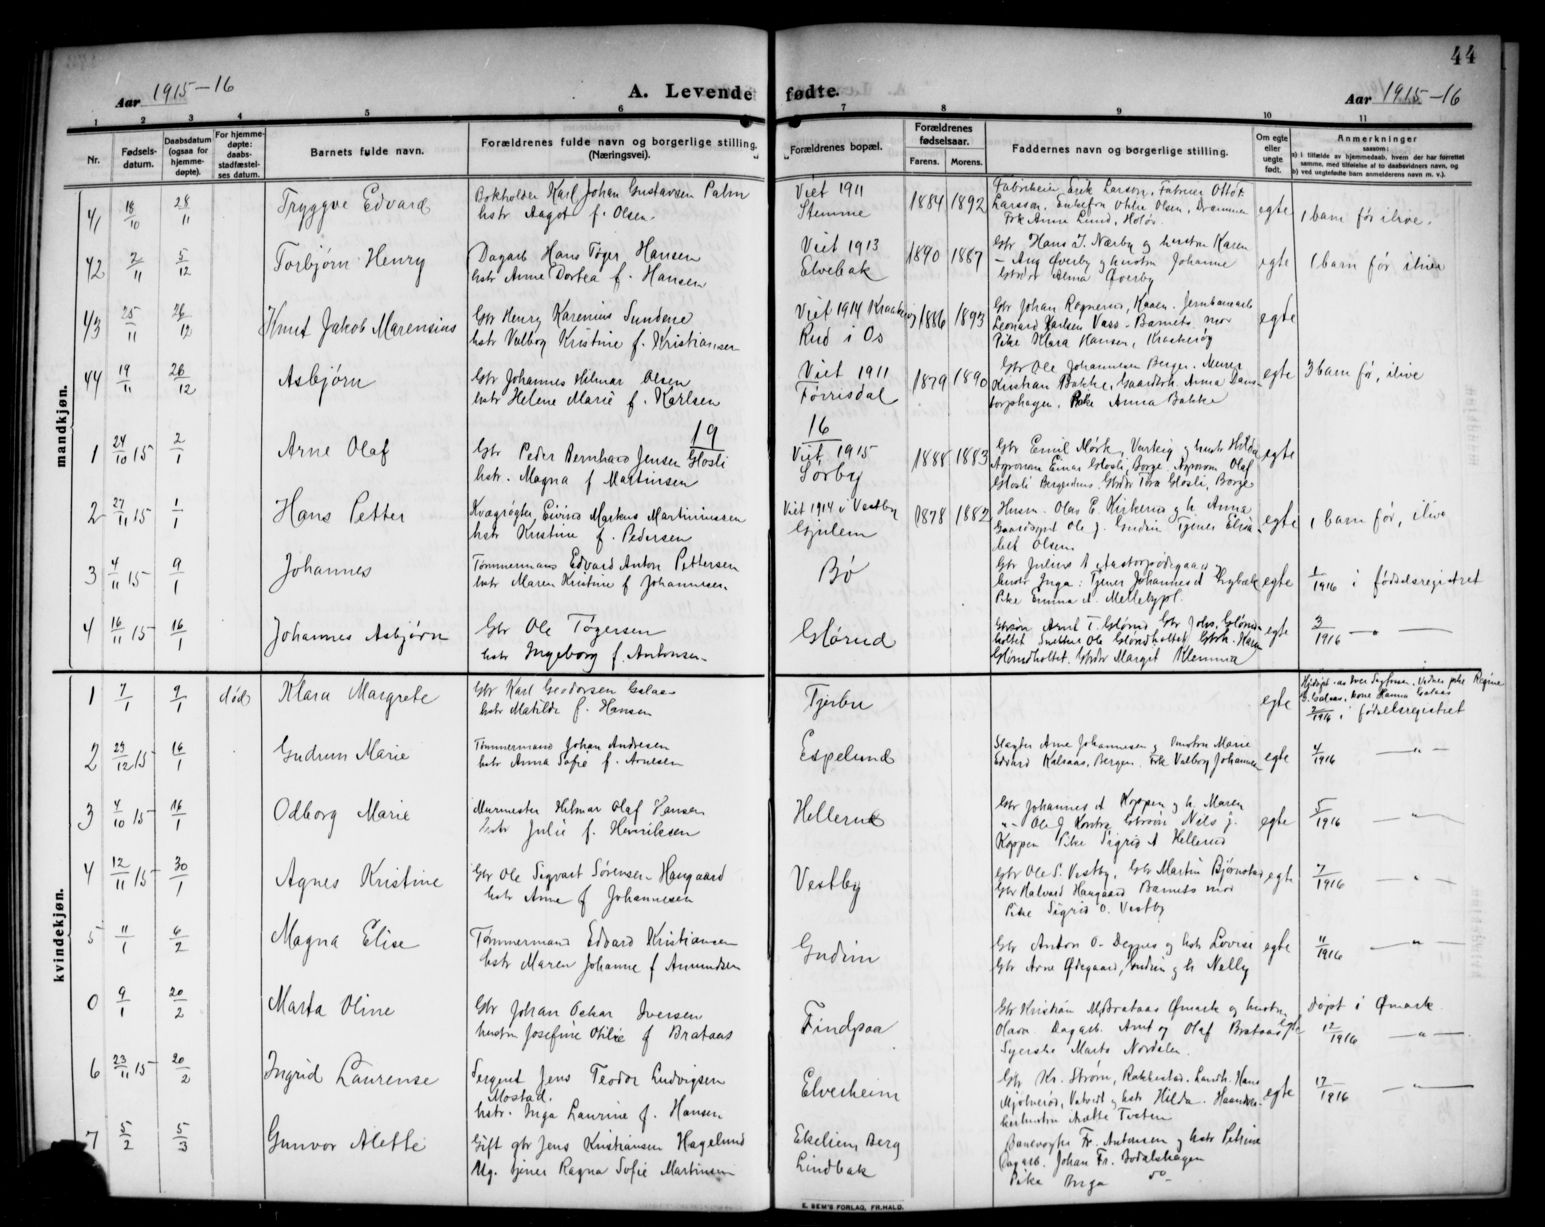 44
Aar 1915-16
A. Levende fødte.
Aar 1915-16
1 2 3 4 5 6 7 8 9 10 11
Nr.
Fødsels-
datum.
Daabsdatum
(ogsaa for
hjemme-
døpte).
For hjemme-
døpte:
daabs-
stadfæstel-
ses datum.
Barnets fulde navn.
Forældrenes fulde navn og borgerlige stilling
(Næringsvei).
Forældrenes bopæl.
Forældrenes
fødselsaar.
Farens. Morens.
Faddernes navn og børgerlige stilling.
Om egte
eller
uegte
født.
Anmerkninger
saasom:
a) i tilfælde av hjemmedaab, hvem der har forrettet
samme, med tilføielse af to daabsvidners navn, og
b) ved uegtefødte barn anmelderens navn m. v.).
mandkjøn.
41 18/10 28/11 Tryggve Edvard
Bokholder Karl Johan Gustavsen Palm
hstr Aagot f. Olsen.
Viet 1911
Stemme
1884 1892
Fabrikeier Erik Larson, Fabrikeier
Larsson, Olsen, Drammen
Frk Anne Lund, Holør
egte
1 barn før ilive.
42 2/11 5/12 Torbjørn Henry
Dagarb Hans Tøger Hansen
hstr Anne Dortea f. Hansen
Viet 1913
Elvebak
1890 1887
Gbr Hans J. Nærby og hustru Karen
- Aug Øverby og hustru Johanne
Gbrdtr Alma Øverby
egte
1 barn før ilive
43 25/11 26/12 Knut Jakob Marensius
Gbr Henry Karenius Sundene
hstr Valborg Kristine f. Kristiansen
Viet 1914 Kraakerøy
Rud i Os
1886 1893
Gbr Johan Rognerud, Kaaen. Jernbanearb
Leonard Karlsen Vass - Barnets mor
Pike Klara Hansen, Kraakerøy
egte
44 19/11 26/12 Asbjørn
Gbr Johannes Hilmar Olsen
hstr Helene Marie f. Karlsen
Viet 1911
Førrisdal
1879 1890
Gbr Ole Johannesen Berger. Murer
Kristian Bakke, Gaardbr. Anna Dans-
torphagen, Pike Anna Bakke
egte
3 barn før, ilive
19 16
1 24/10 15 2/1 Arne Olaf
Gbr Peder Bernhard Jensen Glosli
hstr. Magna f Martinsen
Viet 1915
Sørby
1888 1883
Gbr Emil Mørk, Varteig og hustr Hilda
Agronom Einar Glosli, Borge. Agronom Olaf
Glosli Gbrdtr Tora Glosli, Borge
egte
2 27/11 15 1/1 Hans Petter
Kvægrøgter Eivind Markus Martiniussen
hstr Kristine f. Pedersen
Viet 1914 i Vestby
Gjulem
1878 1882
Husm. Olav E. Kirkerud og h. Anna
Ole J. Gudim Tjener Elisa-
bet Olsen
egte
1 barn før, ilive
3 4/11 15 9/1 Johannes
Tømmermand Edvard Anton Pettersen
hstr Maren Kristine f Johannesen.
Bø
Gbr Julius A Aastorpødegaard
hustr Inga: Tjener Johannes A Gybæk
Pike Emma A. Mellebypl.
egte
1/1916 i fødselsregistret
4 16/11 15 16/1 Johannes Asbjørn
Gbr Ole Tøgersen
hstr Ingeborg f. Antonsen
Glørud
Gbrsøn Arnt T. Glørud Gbr Johs. Glørud-
holtet Snekker Ole Glørudholtet Gbrk. Hans
Glørudholtet. Gbrdtr Margit Klemma
egte
3/1916 — " —
kvindekjøn.
1 7/1 9/1 død Klara Margrete
Gbr Karl Geodorsen Galaas
hstr Matilde f. Hansen
Tjerbu
egte
Hjdøpt av Iver . Vidner pike Regine
G. Galaas, kone Hanna Galaas
2/1916 i fødselsregistret
2 23/12 15 16/1 Gudrun Marie
Tømmermand Johan Andresen
hstr Anna Sofie f. Arnesen
Espelund
Slagter Arne Johannesen og hustru Marie
Edvard Kalsaas, Bergen. Frk Valborg Johannesen
egte
4/1916 — " —
3 4/10 15 16/1 Odborg Marie
Murmester Hilmar Olaf Hansen
hstr Julie f. Henriksen
Hellerud
Gbr Johannes A Koppen og h. Maren
" - Ole J Kontra Gbrsøn Nils J.
Koppen Pike Sigrid A Hellerud
egte
5/1916 — " —
4 12/11 15 30/1 Agnes Kristine
Gbr Ole Sigvart Sørensen Haugaard
hstr Anne f Johannesen
Vestby
Gbr Ole S. Vestby, Gbr Martin Bjørnstad
Gbr Halvard Haugaard Barnets mor
Pike Sigrid O. Vestby
egte
7/1916 — " —
5 11/1 6/2 Magna Elise
Tømmermand Edvard Kristiansen
hstr Maren Johanne f Amundsen
Gudim
Gbr Anton O. Degnes og hstr Lovise
Gbr Arne Ødegaard, Gudim og h Nelly
egte
11/1916 — " —
0 9/1 20/2 Marta Oline
Gbr Johan Oskar Iversen
hustru Josefine Otilie f Brataas
Findpaa
Gbr Kristian M Brataas Ømark og hustru
Olava Dagarb. Arnt og Olaf Brataas
Syerske Marta Nordalen.
egte
Døpt i Ømark.
12/1916 — " —
6 23/11 15 20/2 Ingrid Laurense
Sergent Jens Teodor Ludvigsen
Mostad.
hstr. Inga Laurine f. Hansen
Elverheim
Gbr Kr. Strøm, Rakkestad. Landh. Hans
Mjølnerød, Varteig og hstr Hilda.
Tveten
egte
17/1916 — " —
7 5/2 5/3 Gunvor Alette
Gift gbr Jens Kristiansen Hagelund
Ug. tjener Ragna Sofie Martinsen
Ekeliem Berg
Lindbak
Banevogter Fr. Antonsen og hstr Petrine
Dagarb. Johan Fr. Bodalshagen
Pike Inga do -
E. SEM'S FORLAG, FR.HALD.